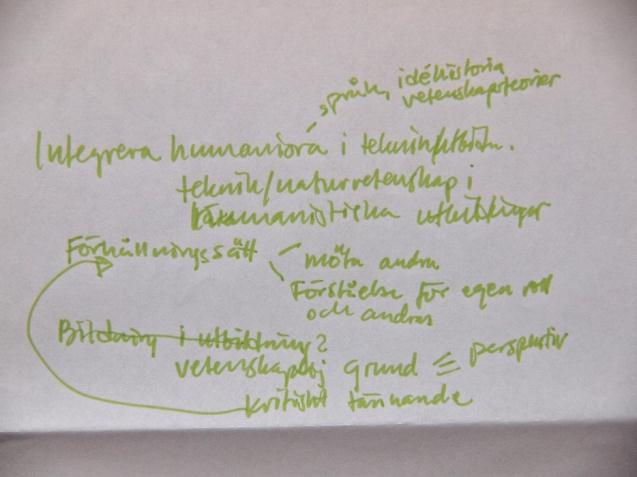 språk, idéhistoria
vetenskapsteorier
Integrera humaniora i teknikutbildn.
teknik/naturvetenskap i
humanistiska utbildningar
Förhållningssätt
möta andra
Förståelse för egen roll
och andras
Bildning i utbildning?
vetenskaplig grund
perspektiv
kritiskt tänkande